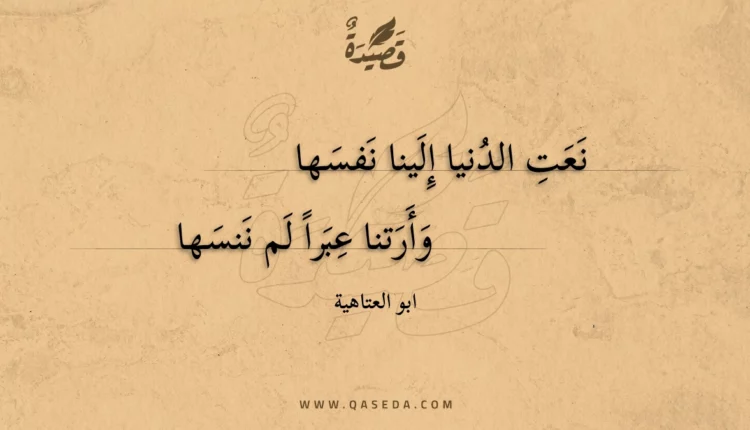 قَصِيْدَةٌ
نَعَتِ الدُنيا إِلَينا نَفسَها
وَأَرَتنا عِبَراً لَم نَنسَها
ابو العتاهية
WWW.QASEDA.COM